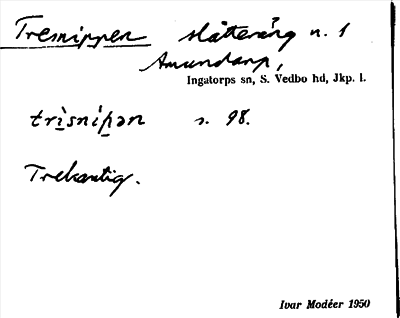 Tresnippen slåtteräng n. 1
Amundarp,
Ingatorps sn, S. Vedbo hd, Jkp. l.
trìsnípən s. 98.
Trekantig.
Ivar Modéer 1950